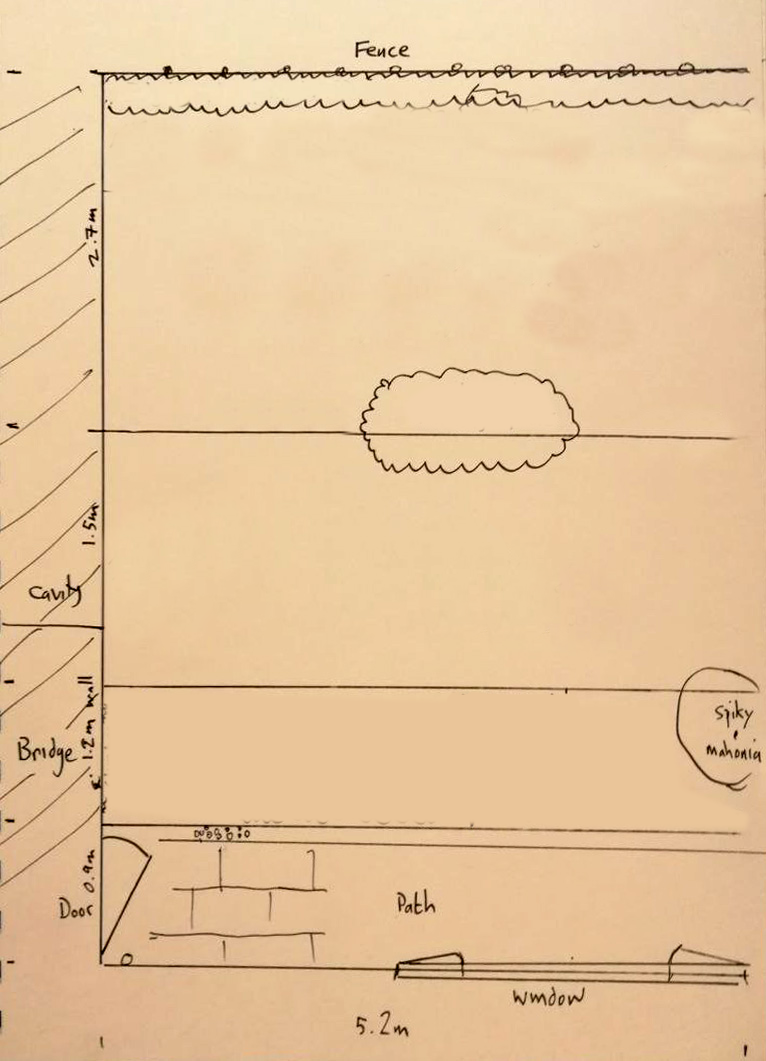 Fence
2.7m
1.5m
Cavity
1.2m wall
Bridge
Spiky
mahonia
0.9m
Door
Path
Window
5.2m